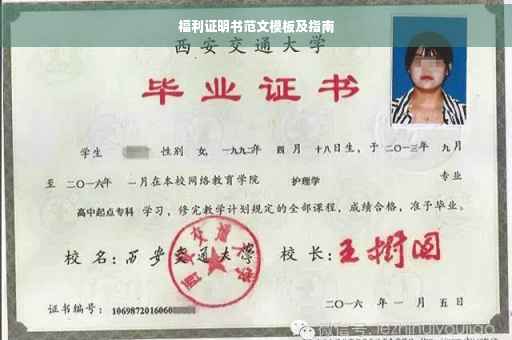 福利证明书范文模板及指南
西安交通大学
毕业证书
学生 性别 女，一九九二年 四 月 十八日生，于 二〇一三年 九月
至 二〇一六年 一月在本校网络教育学院 护理学 专业
高中起点专科 学习，修完教学计划规定的全部课程，成绩合格，准予毕业。
校 名：西安交通大学 校 长：王树国
证书编号：1069872016060
二〇一六 年 一 月 五 日
微信号: jezhihuiyoujiao